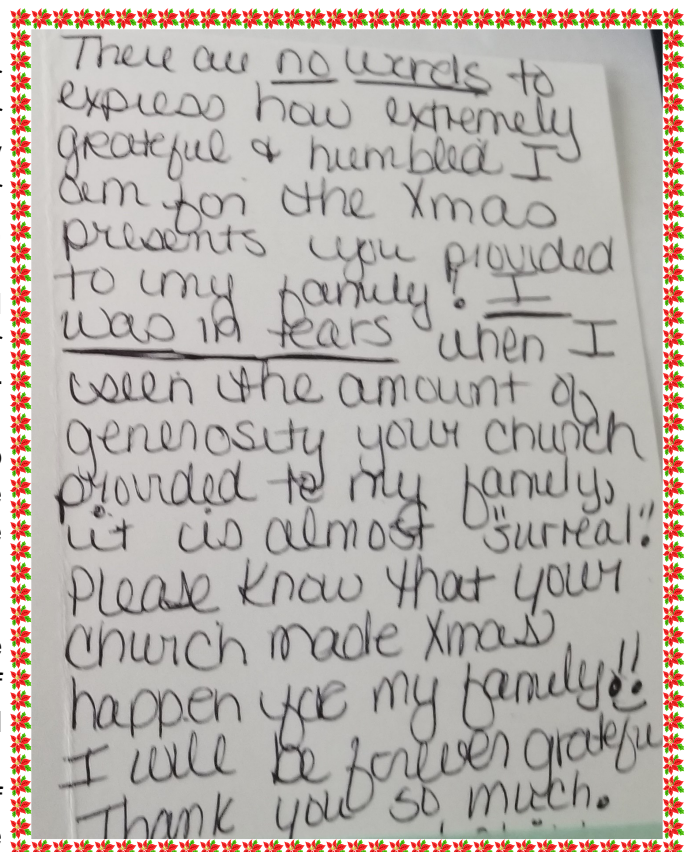 There are no words to
express how extremely
grateful & humbled I
am for the Xmas
presents you provided
to my family! I
was in tears when I
seen the amount of
generosity your church
provided to my family,
it is almost "surreal".
Please know that your
church made Xmas
happen for my family!!
I will be forever grateful
Thank you so much.